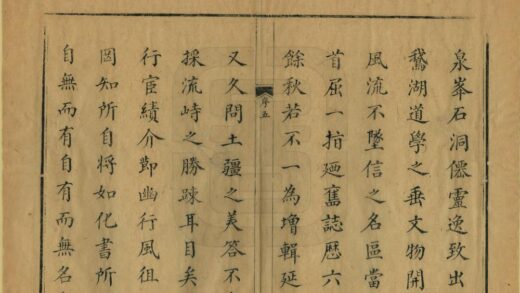 泉峯石洞僊靈逸致出
鵝湖道學之垂文物開
風流不墜信之名區當
首屈一指廼舊誌歷六
餘秋若不一為增輯延
序五
又久問土疆之美答不
採流峙之勝踈耳目矣
行宦績介節幽行風徂
因知所自將如化書所
自無而有自有而無名